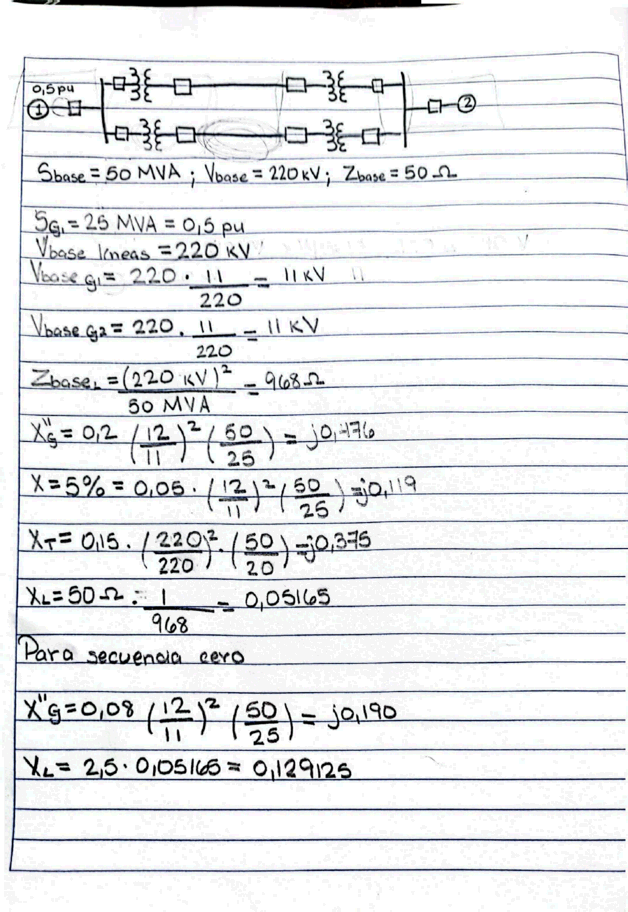 0,5pu
1
2
Sbase = 50 MVA ; Vbase = 220 kV ; Zbase = 50 Ω
SG1 = 25 MVA = 0,5 pu
Vbase líneas = 220 kV
Vbase g1 = 220 · 11/220 = 11 kV
Vbase g2 = 220 · 11/220 = 11 kV
ZbaseL = (220 kV)²/50 MVA = 968 Ω
X"G = 0,2 (12/11)² (50/25) = j0,476
X = 5% = 0,05 · (12/11)² (50/25) = j0,119
XT = 0,15 · (220/220)² · (50/20) = j0,375
XL = 50 Ω · 1/968 = 0,05165
Para secuencia cero
X"G = 0,08 (12/11)² (50/25) = j0,190
XL = 2,5 · 0,05165 = 0,129125